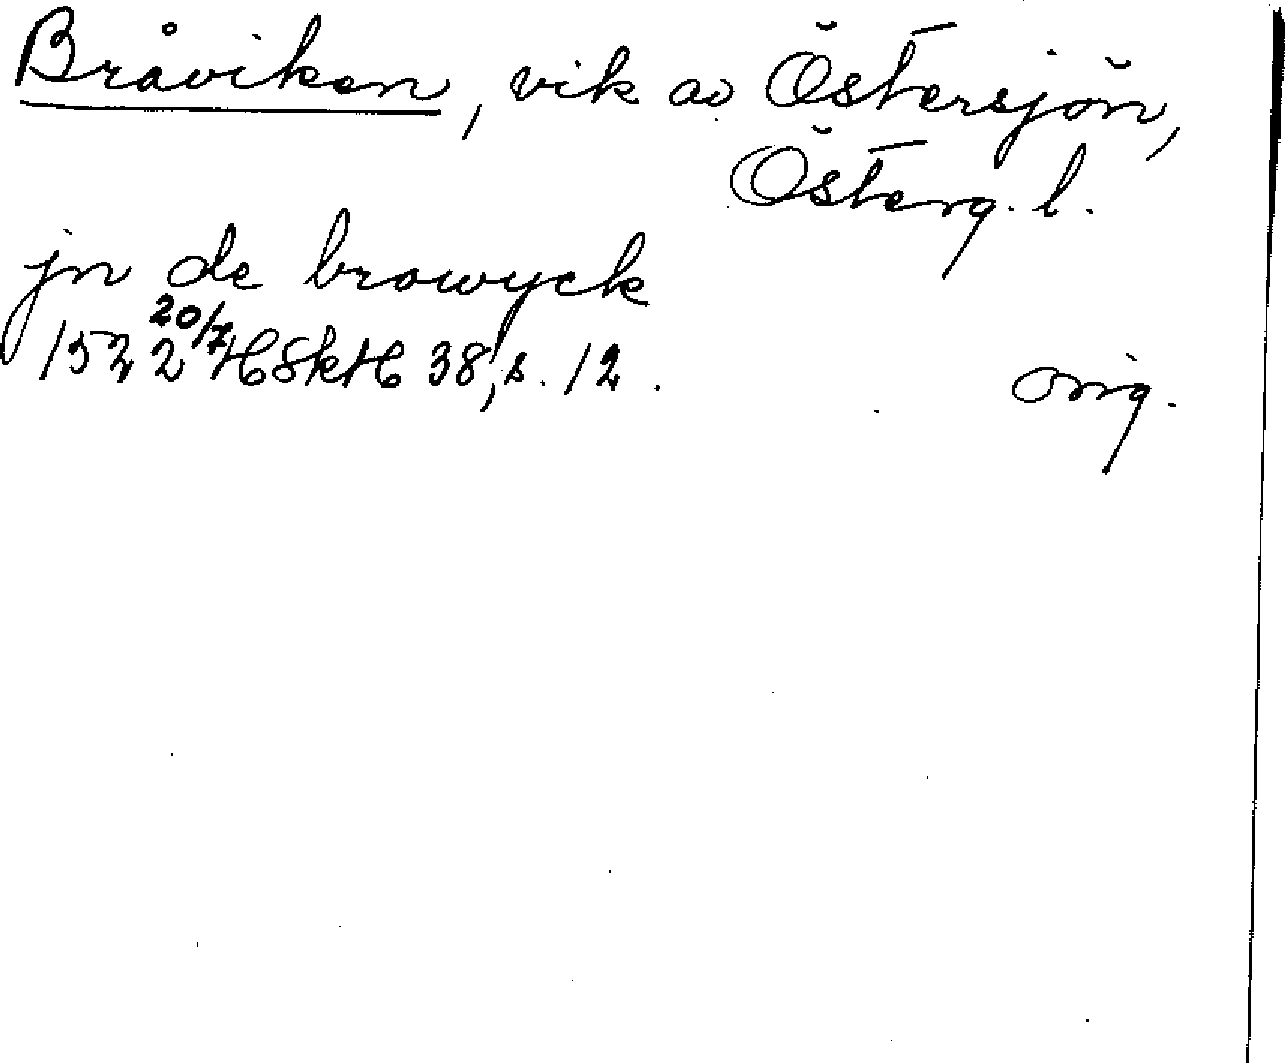 Bråviken, vik av Östersjön,
Österg. l.
jn de browyck
1522 20/7 HSkH 38, s. 12. orig.